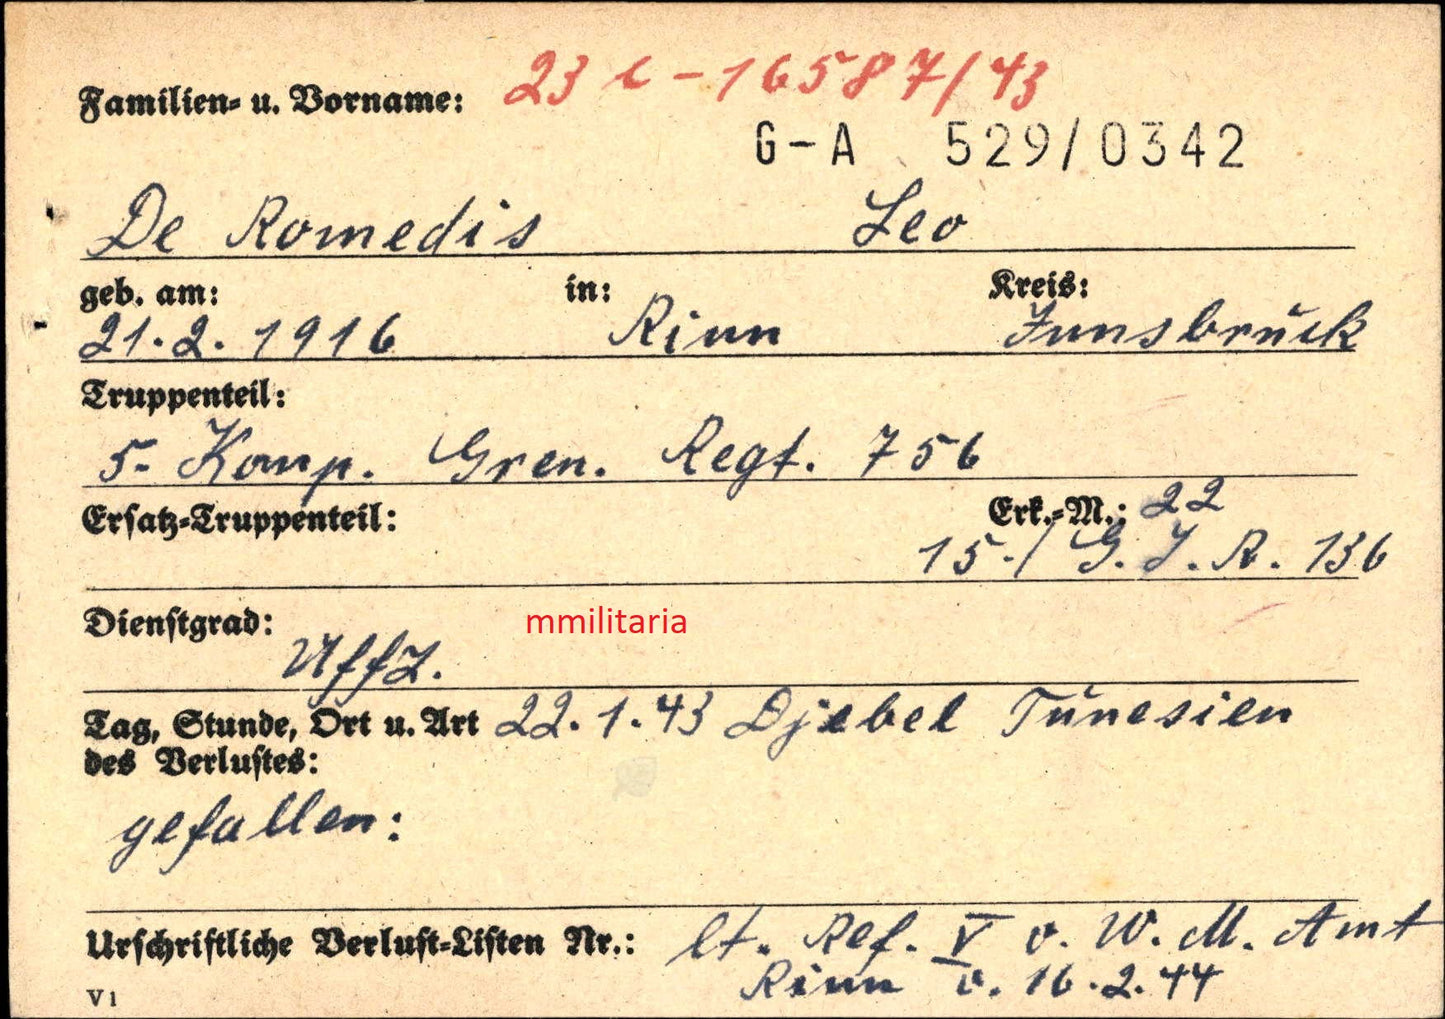 23 c - 16587/43
Familien- u. Vorname:
G-A 529/0342
De Romedis Leo
geb. am: in: Kreis:
21.2.1916 Rinn Innsbruck
Truppenteil:
5. Komp. Gren. Regt. 756
Ersatz-Truppenteil: Erk.-M.: 22
15./ G.J.R. 136
Dienstgrad:
mmilitaria
Uffz.
Tag, Stunde, Ort u. Art 22.1.43 Djebel Tunesien
des Verlustes:
gefallen:
Urschriftliche Verlust-Listen Nr.: lt. Ref. V v. W. M. Amt
Rinn v. 16.2.44
V1